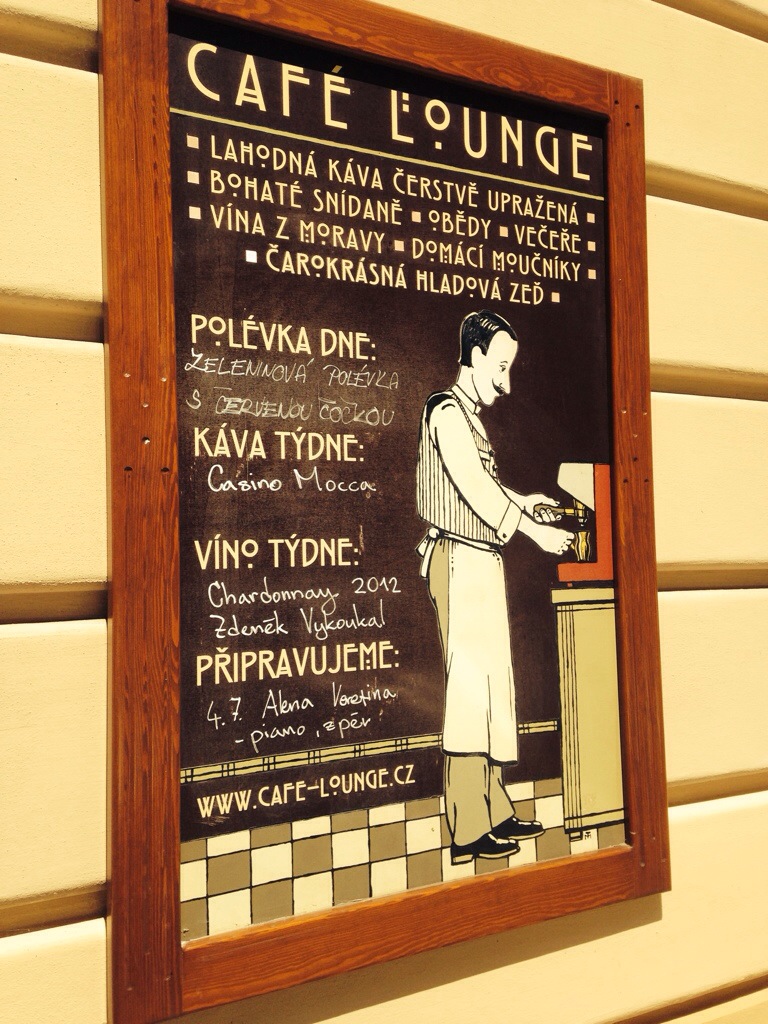 CAFÉ LOUNGE
▪ LAHODNÁ KÁVA ČERSTVĚ UPRAŽENÁ ▪
▪ BOHATÉ SNÍDANĚ ▪ OBĚDY ▪ VEČEŘE ▪
▪ VÍNA Z MORAVY ▪ DOMÁCÍ MOUČNÍKY ▪
▪ ČAROKRÁSNÁ HLADOVÁ ZEĎ ▪
POLÉVKA DNE:
ZELENINOVÁ POLÉVKA
S ČERVENOU ČOČKOU
KÁVA TÝDNE:
Casino Mocca
VÍNO TÝDNE:
Chardonnay 2012
Zdeněk Vykoukal
PŘIPRAVUJEME:
4.7. Alena
- piano, zpěv
WWW.CAFE-LOUNGE.CZ